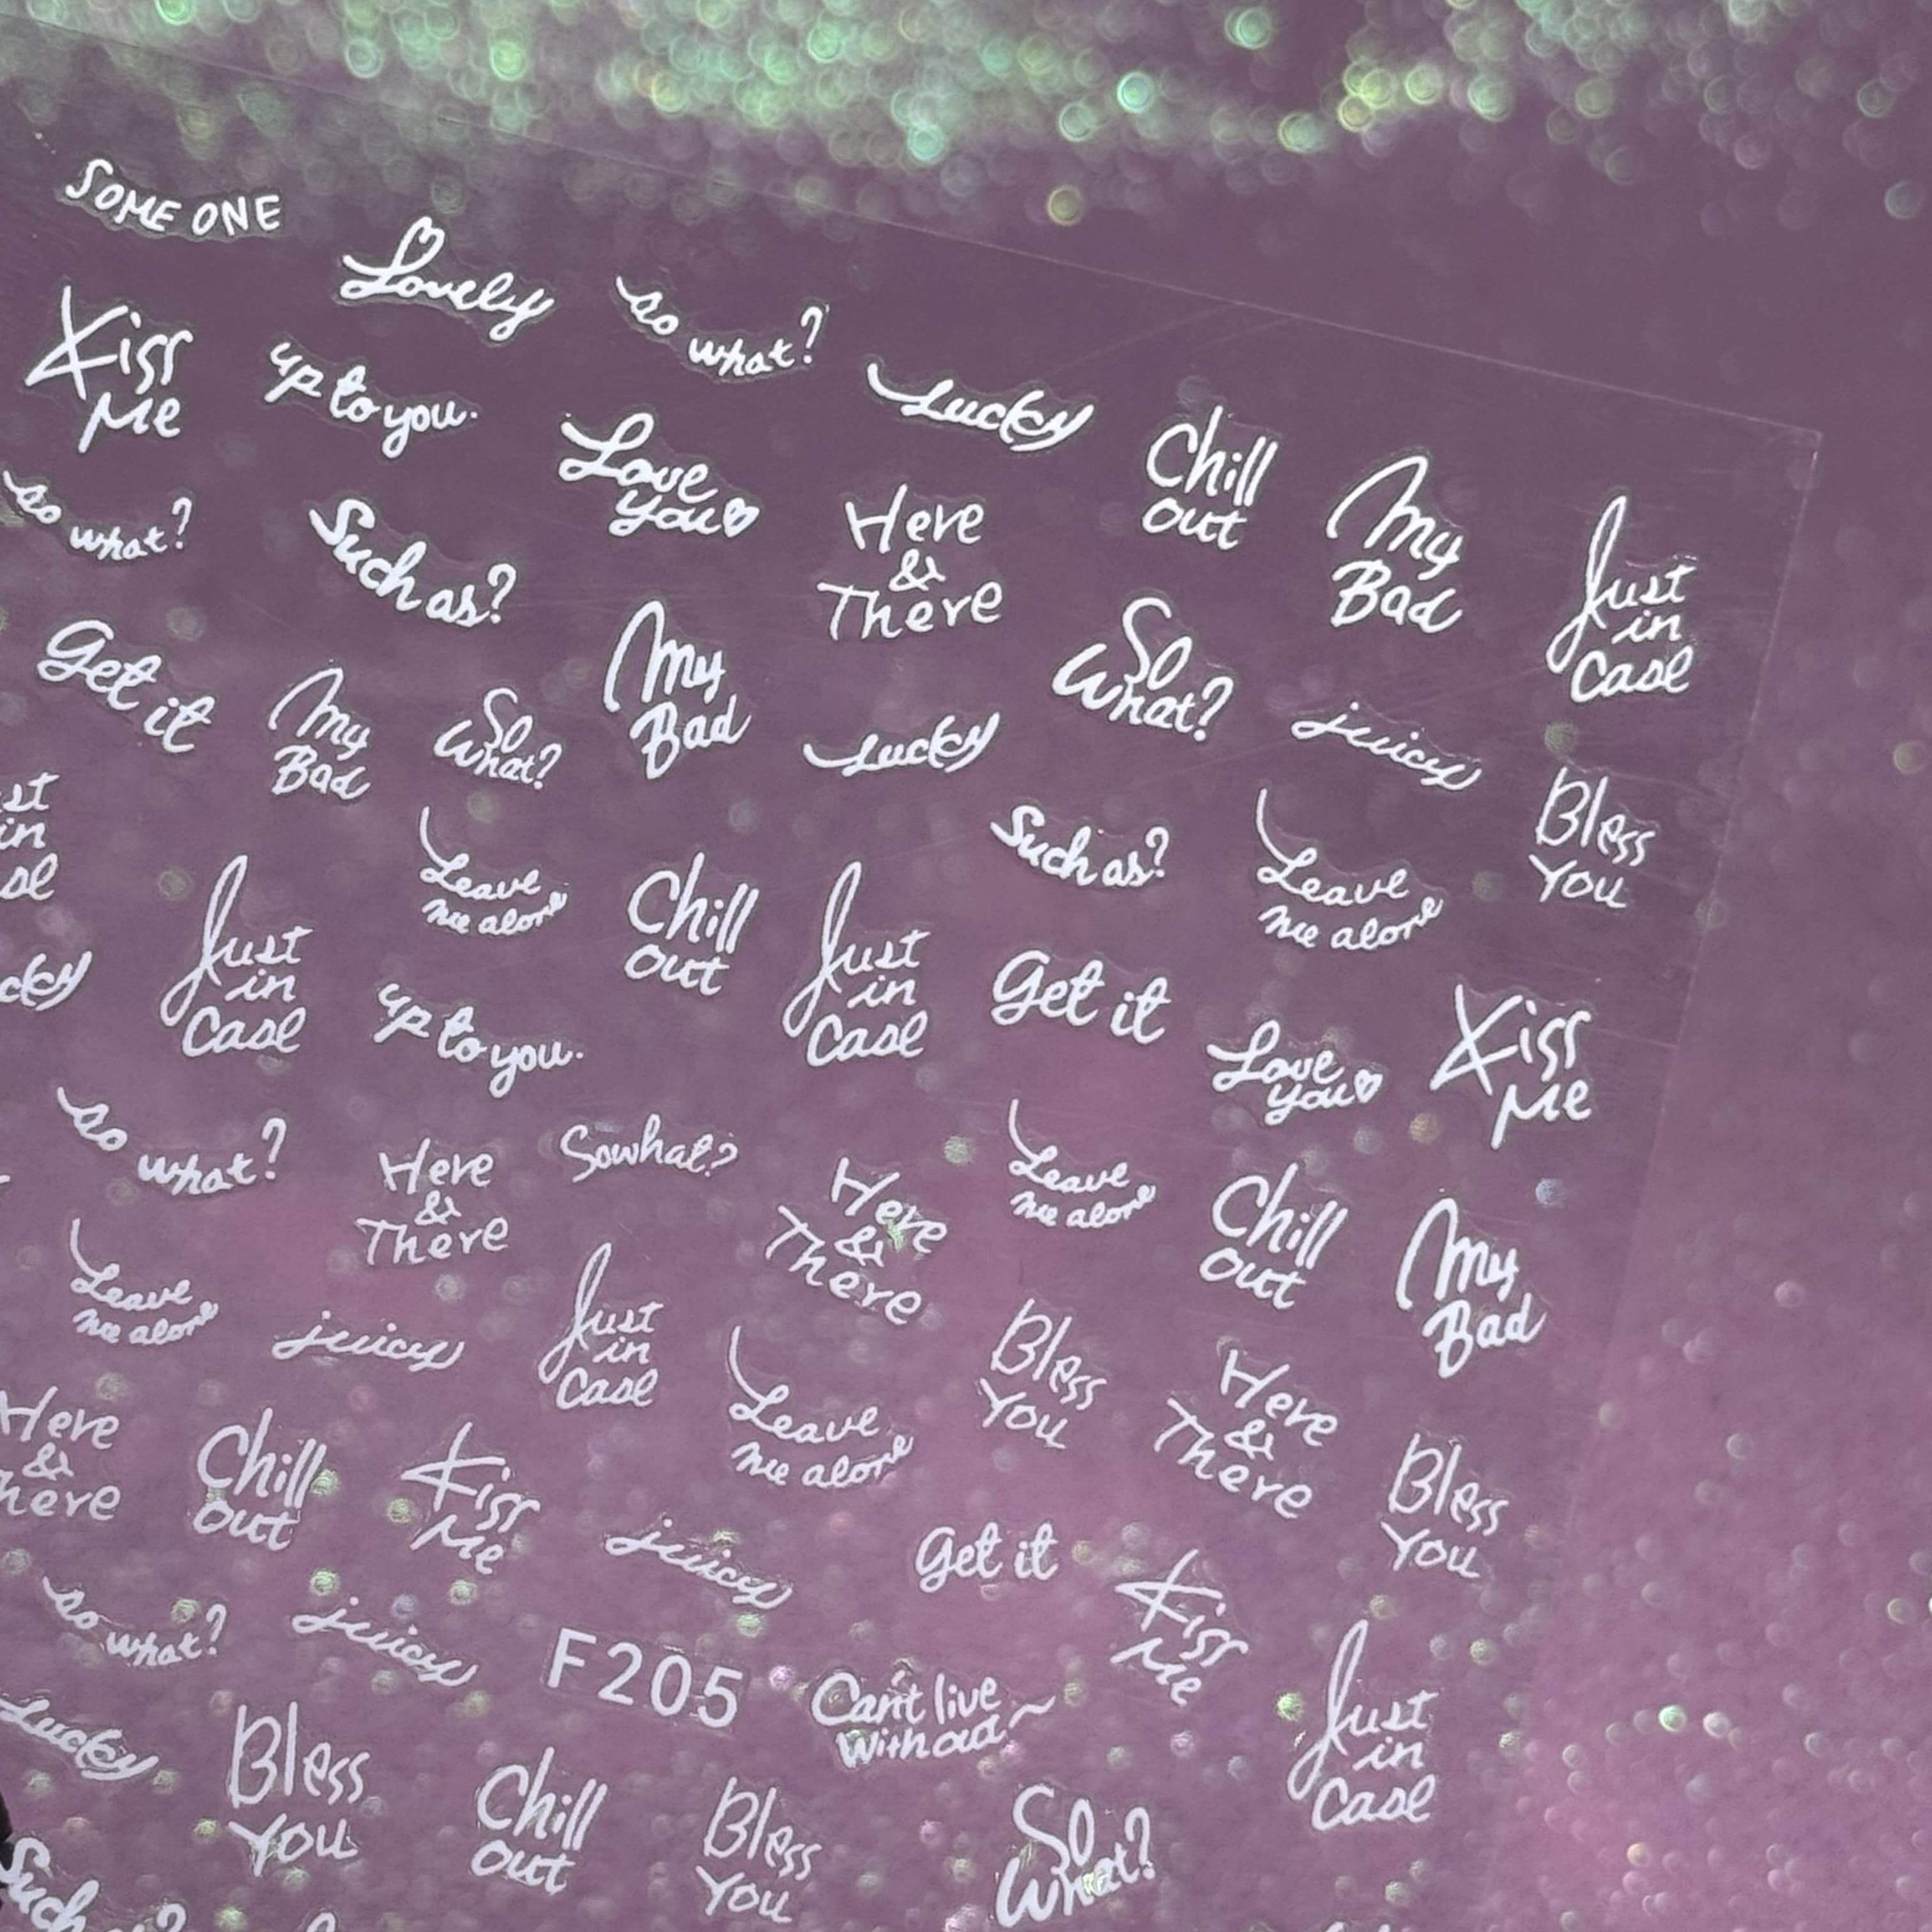 SOME ONE
Lovely
so what?
Kiss
Me
up to you.
Lucky
Love
you
Chill
out
My
Bad
Just
in
Case
so what?
Such as?
Here
&
There
Get it
My
Bad
So
What?
My
Bad
Lucky
So
What?
juicy
Bless
You
st
in
se
Leave
me alone
Chill
out
Just
in
Case
Such as?
Leave
me alone
cky
Just
in
Case
up to you.
Get it
Love
you
Kiss
Me
so what?
Here
&
There
So what?
Here
&
There
Leave
me alone
Chill
out
My
Bad
Leave
me alone
juicy
Just
in
Case
Leave
me alone
Bless
You
Here
&
There
Bless
You
Here
&
here
Chill
out
Kiss
Me
juicy
Get it
Kiss
Me
Just
in
Case
so what?
juicy
F205
Can't live
without~
Lucky
Bless
You
Chill
out
Bless
You
So
What?
Such